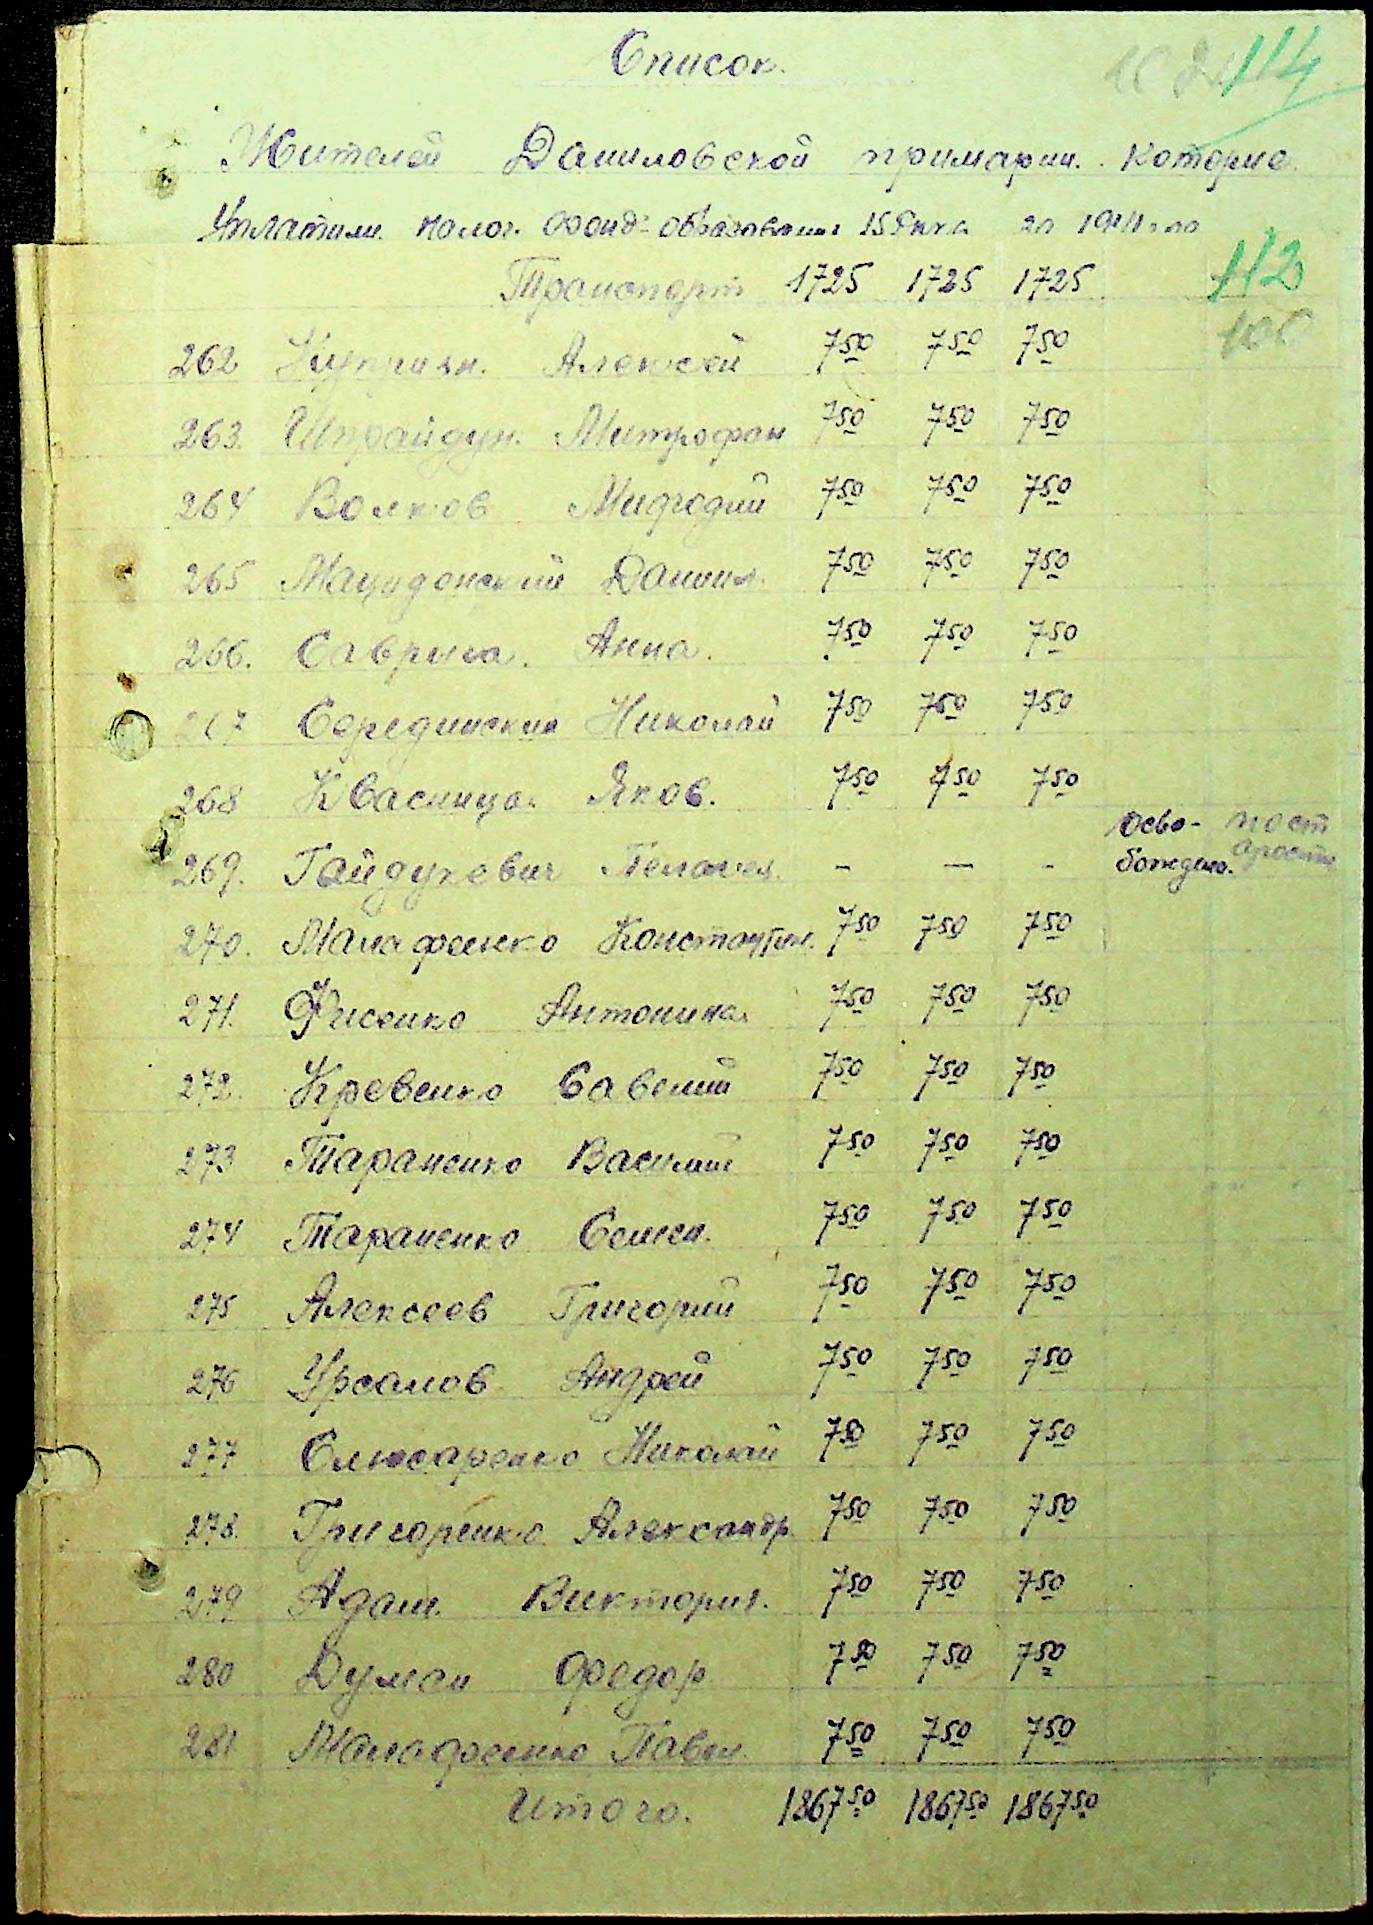 Список.
114
Жителей Даниловской примарии. которые
Уплатили. налог. Фонд. образования 15 за 1941 год
112
Транспорт 1725 1725 1725
106
262 Куприян. Алексей 7 50 7 50 7 50
263. Шпрайдун. Митрофан 7 50 7 50 7 50
264 Волков Мифодий 7 50 7 50 7 50
265 Мацидонский Данил. 7 50 7 50 7 50
266. Саврига. Анна. 7 50 7 50 7 50
267 Серединский Николай 7 50 7 50 7 50
268 Квасница. Яков. 7 50 7 50 7 50
269. Гайдукевич Пелагея. – — - осво- пост
бождена. арости
270. Малафеенко Константин. 7 50 7 50 7 50
271. Фисенко Антонина. 7 50 7 50 7 50
272. Кревенко Савелий 7 50 7 50 7 50
273 Тараненко Василий 7 50 7 50 7 50
274 Тараненко Семен. 7 50 7 50 7 50
275 Алексеев Григорий 7 50 7 50 7 50
276 Урсалов Андрей 7 50 7 50 7 50
277 Слюсаренко Николай 7 50 7 50 7 50
278. Григоренко Александр. 7 50 7 50 7 50
279 Адам. Виктория. 7 50 7 50 7 50
280 Думан Федор 7 50 7 50 7 50
281 Малафеенко Павел. 7 50 7 50 7 50
Итого. 1867 50 1867 50 1867 50